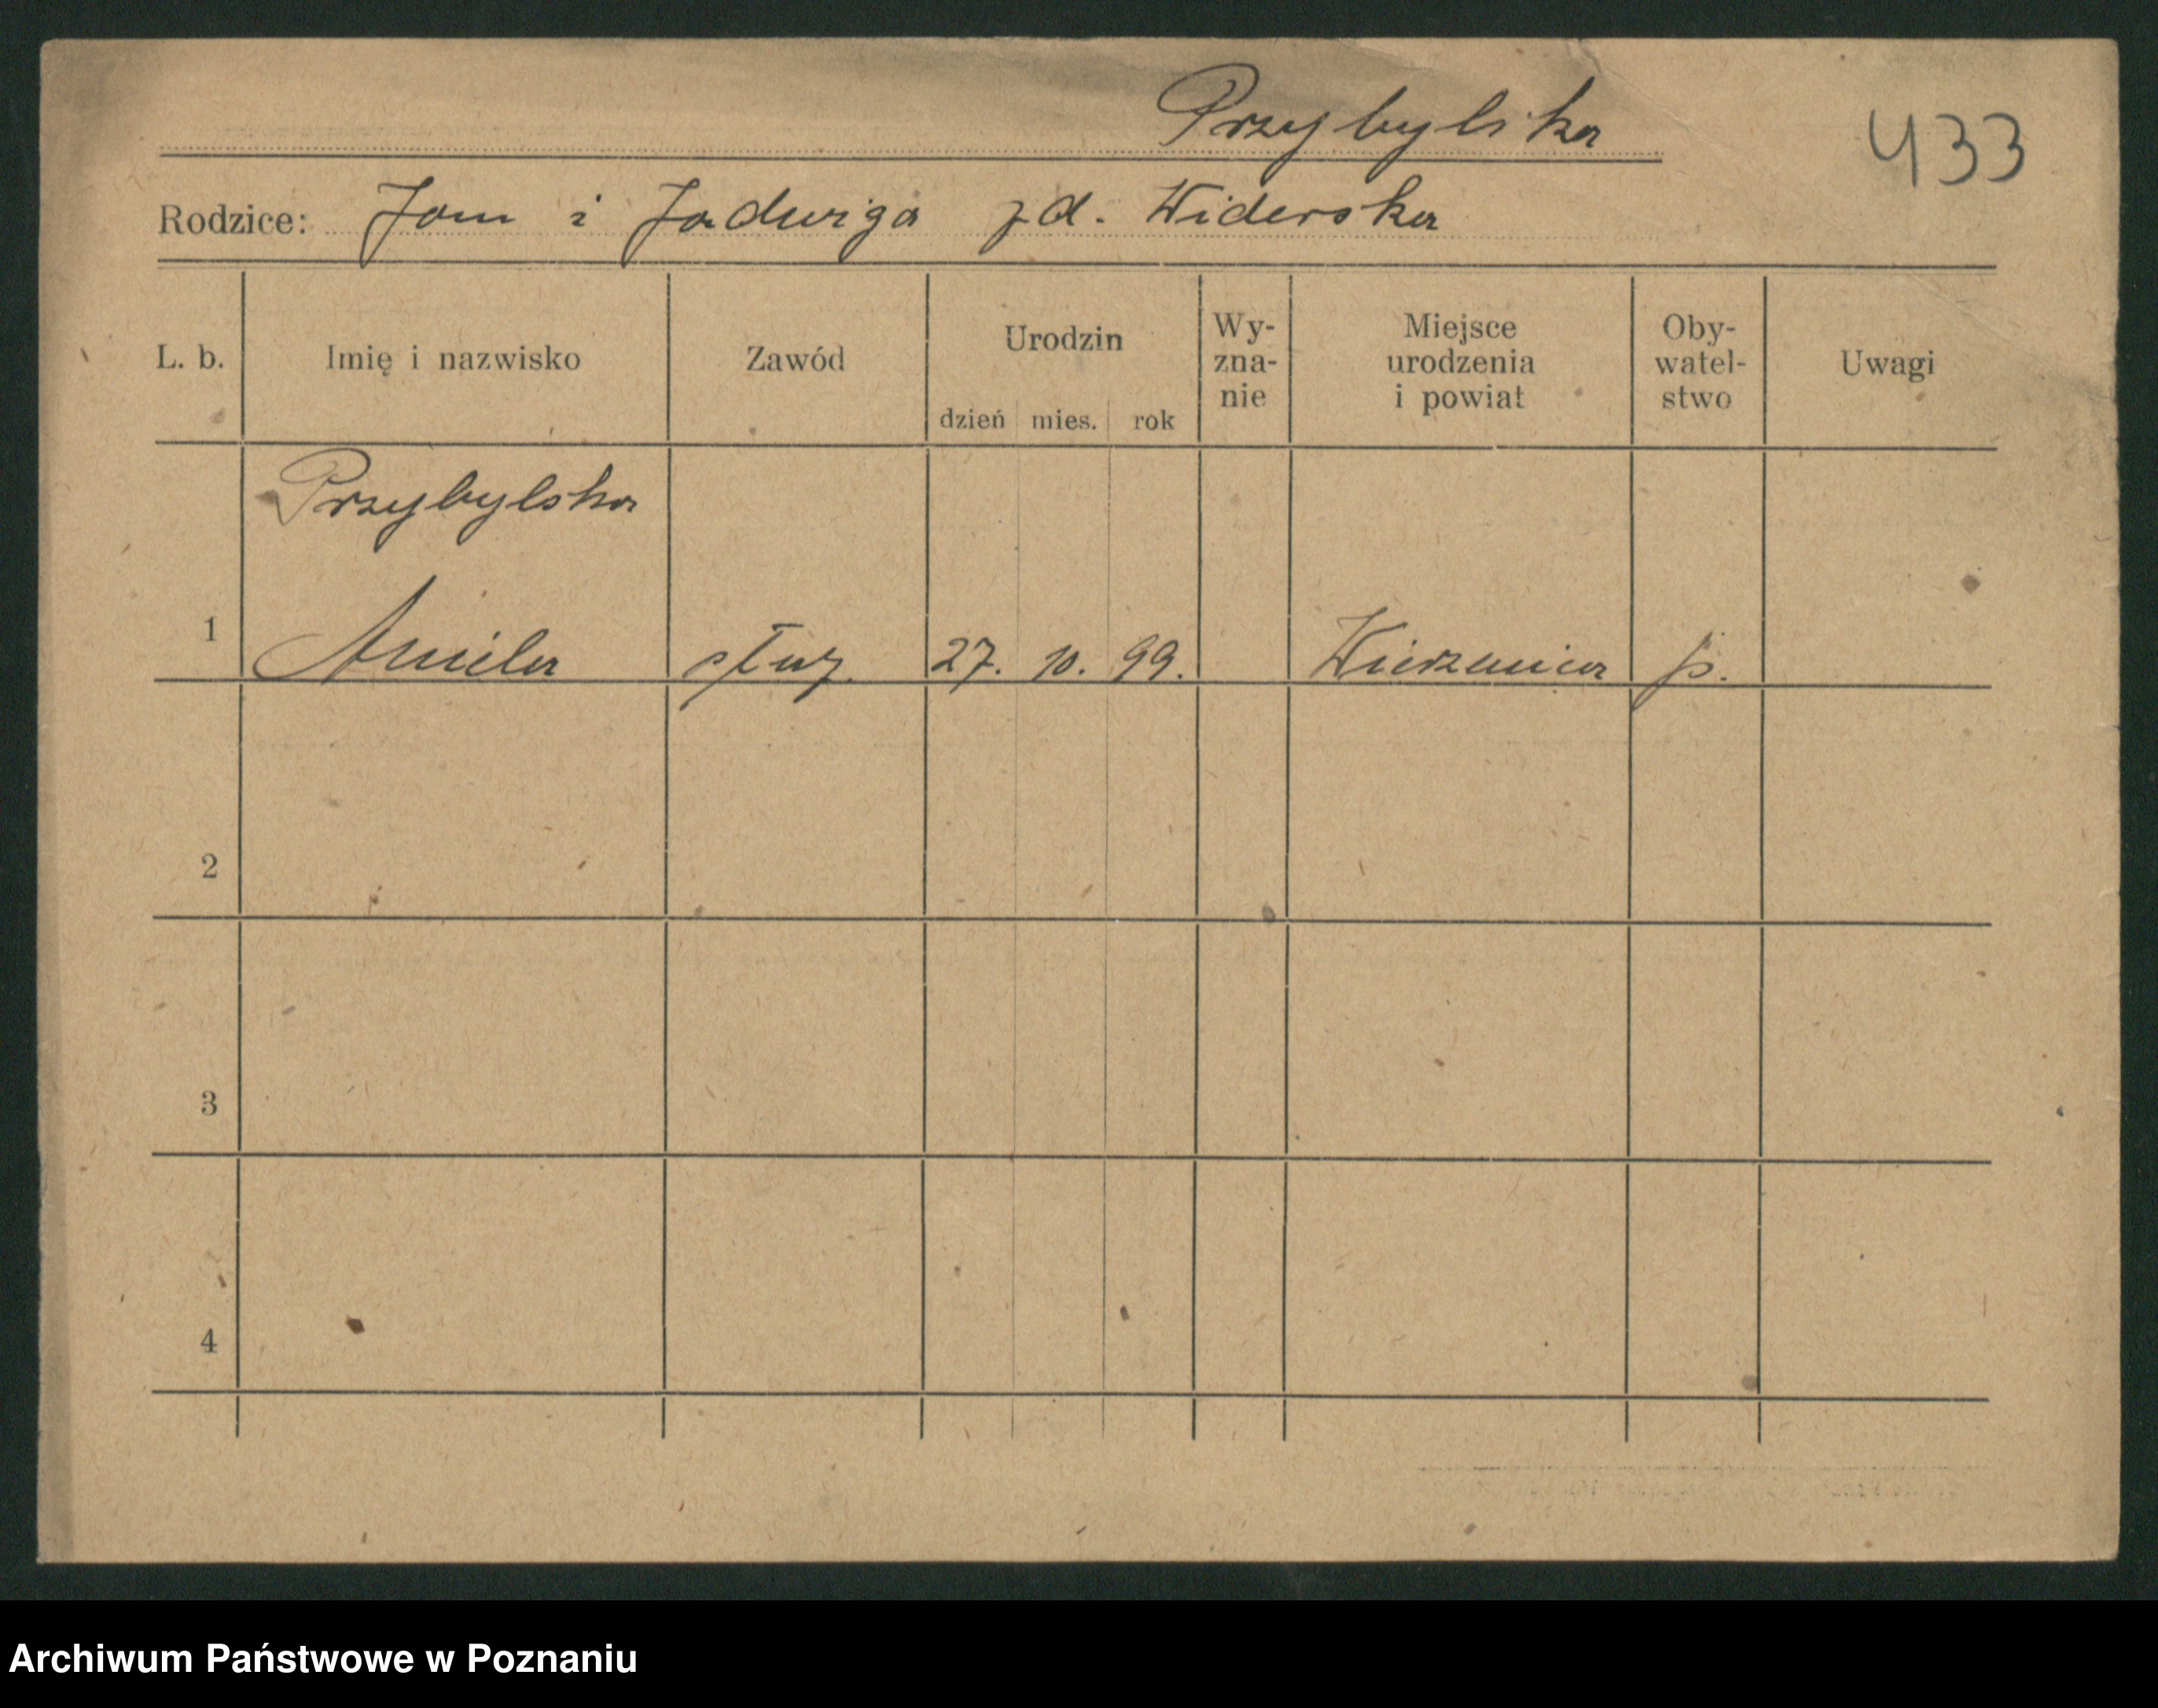 Przybylska
433
Rodzice: Jan i Jadwiga zd. Widerska
L. b. Imię i nazwisko Zawód Urodzin dzień mies. rok Wy-zna-nie Miejsce urodzenia i powiat Oby-watel-stwo Uwagi
Przybylska
1 Aniela służ. 27. 10. 99. Wierzenica p.
2
3
4
Archiwum Państwowe w Poznaniu